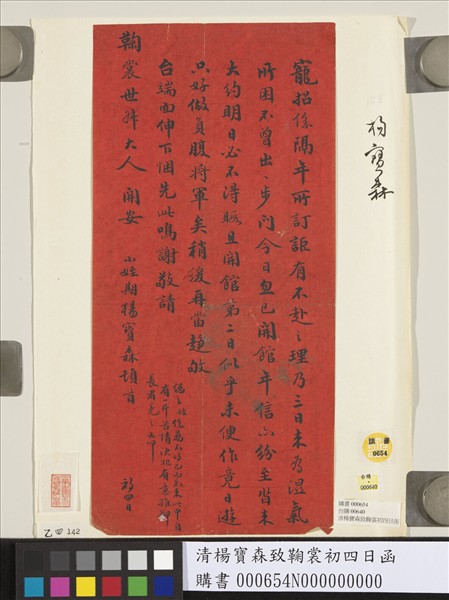 楊寶森
寵招係隔年所訂詎有不赴之理乃三日來為溼氣
所困不曾出一步門今日忽已開館年信亦紛至沓來
大約明日必不得暇且開館第二日似乎未便作竟日遊
只好做負腹將軍矣稍緩再當趨敂
台端面伸下悃先此鳴謝敬請
鞠裳世叔大人 開安
小姪期楊寶森頓首
初四日
購書
0654
台購
000640
購書 000654
台購 00640
清楊寶森致鞠裳初四日函
乙四 142
清楊寶森致鞠裳初四日函
購書 000654N000000000